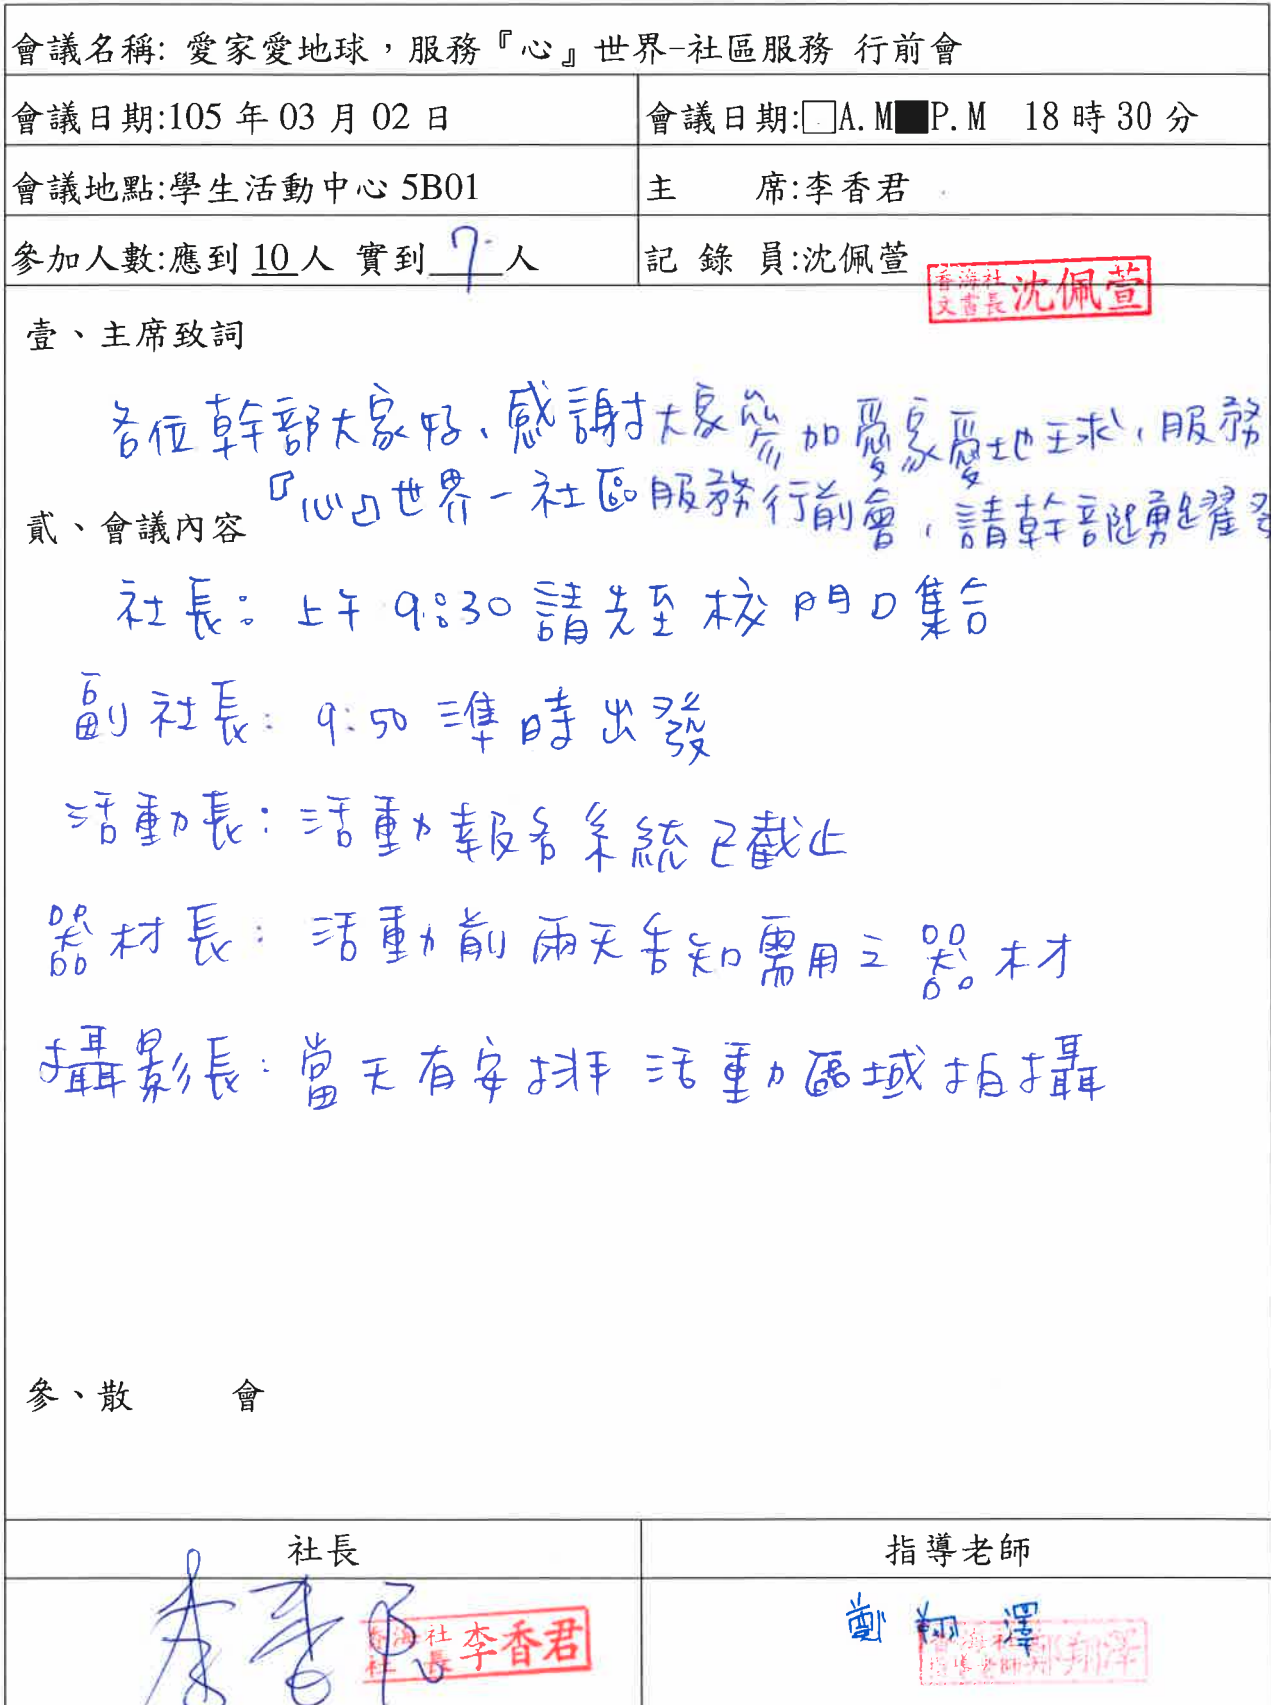 會議名稱: 愛家愛地球，服務『心』世界-社區服務 行前會
會議日期:105 年 03 月 02 日
會議日期:□A.M■P.M 18 時 30 分
會議地點:學生活動中心 5B01
主 席:李香君
參加人數:應到 10 人 實到 7 人
記 錄 員:沈佩萱
香海社
文書長 沈佩萱
壹、主席致詞
各位幹部大家好、感謝大家參加愛家愛地球，服務
『心』世界－社區服務行前會，請幹部踴躍發
貳、會議內容
社長：上午 9:30 請先至校門口集合
副社長：9:50 準時出發
活動長：活動報名系統已截止
器材長：活動前兩天告知需用之器材
攝影長：當天有安排活動區域拍攝
參、散 會
社長
指導老師
李香君
香海社
社 長 李香君
鄭翔澤
香海社
指導老師 鄭翔澤